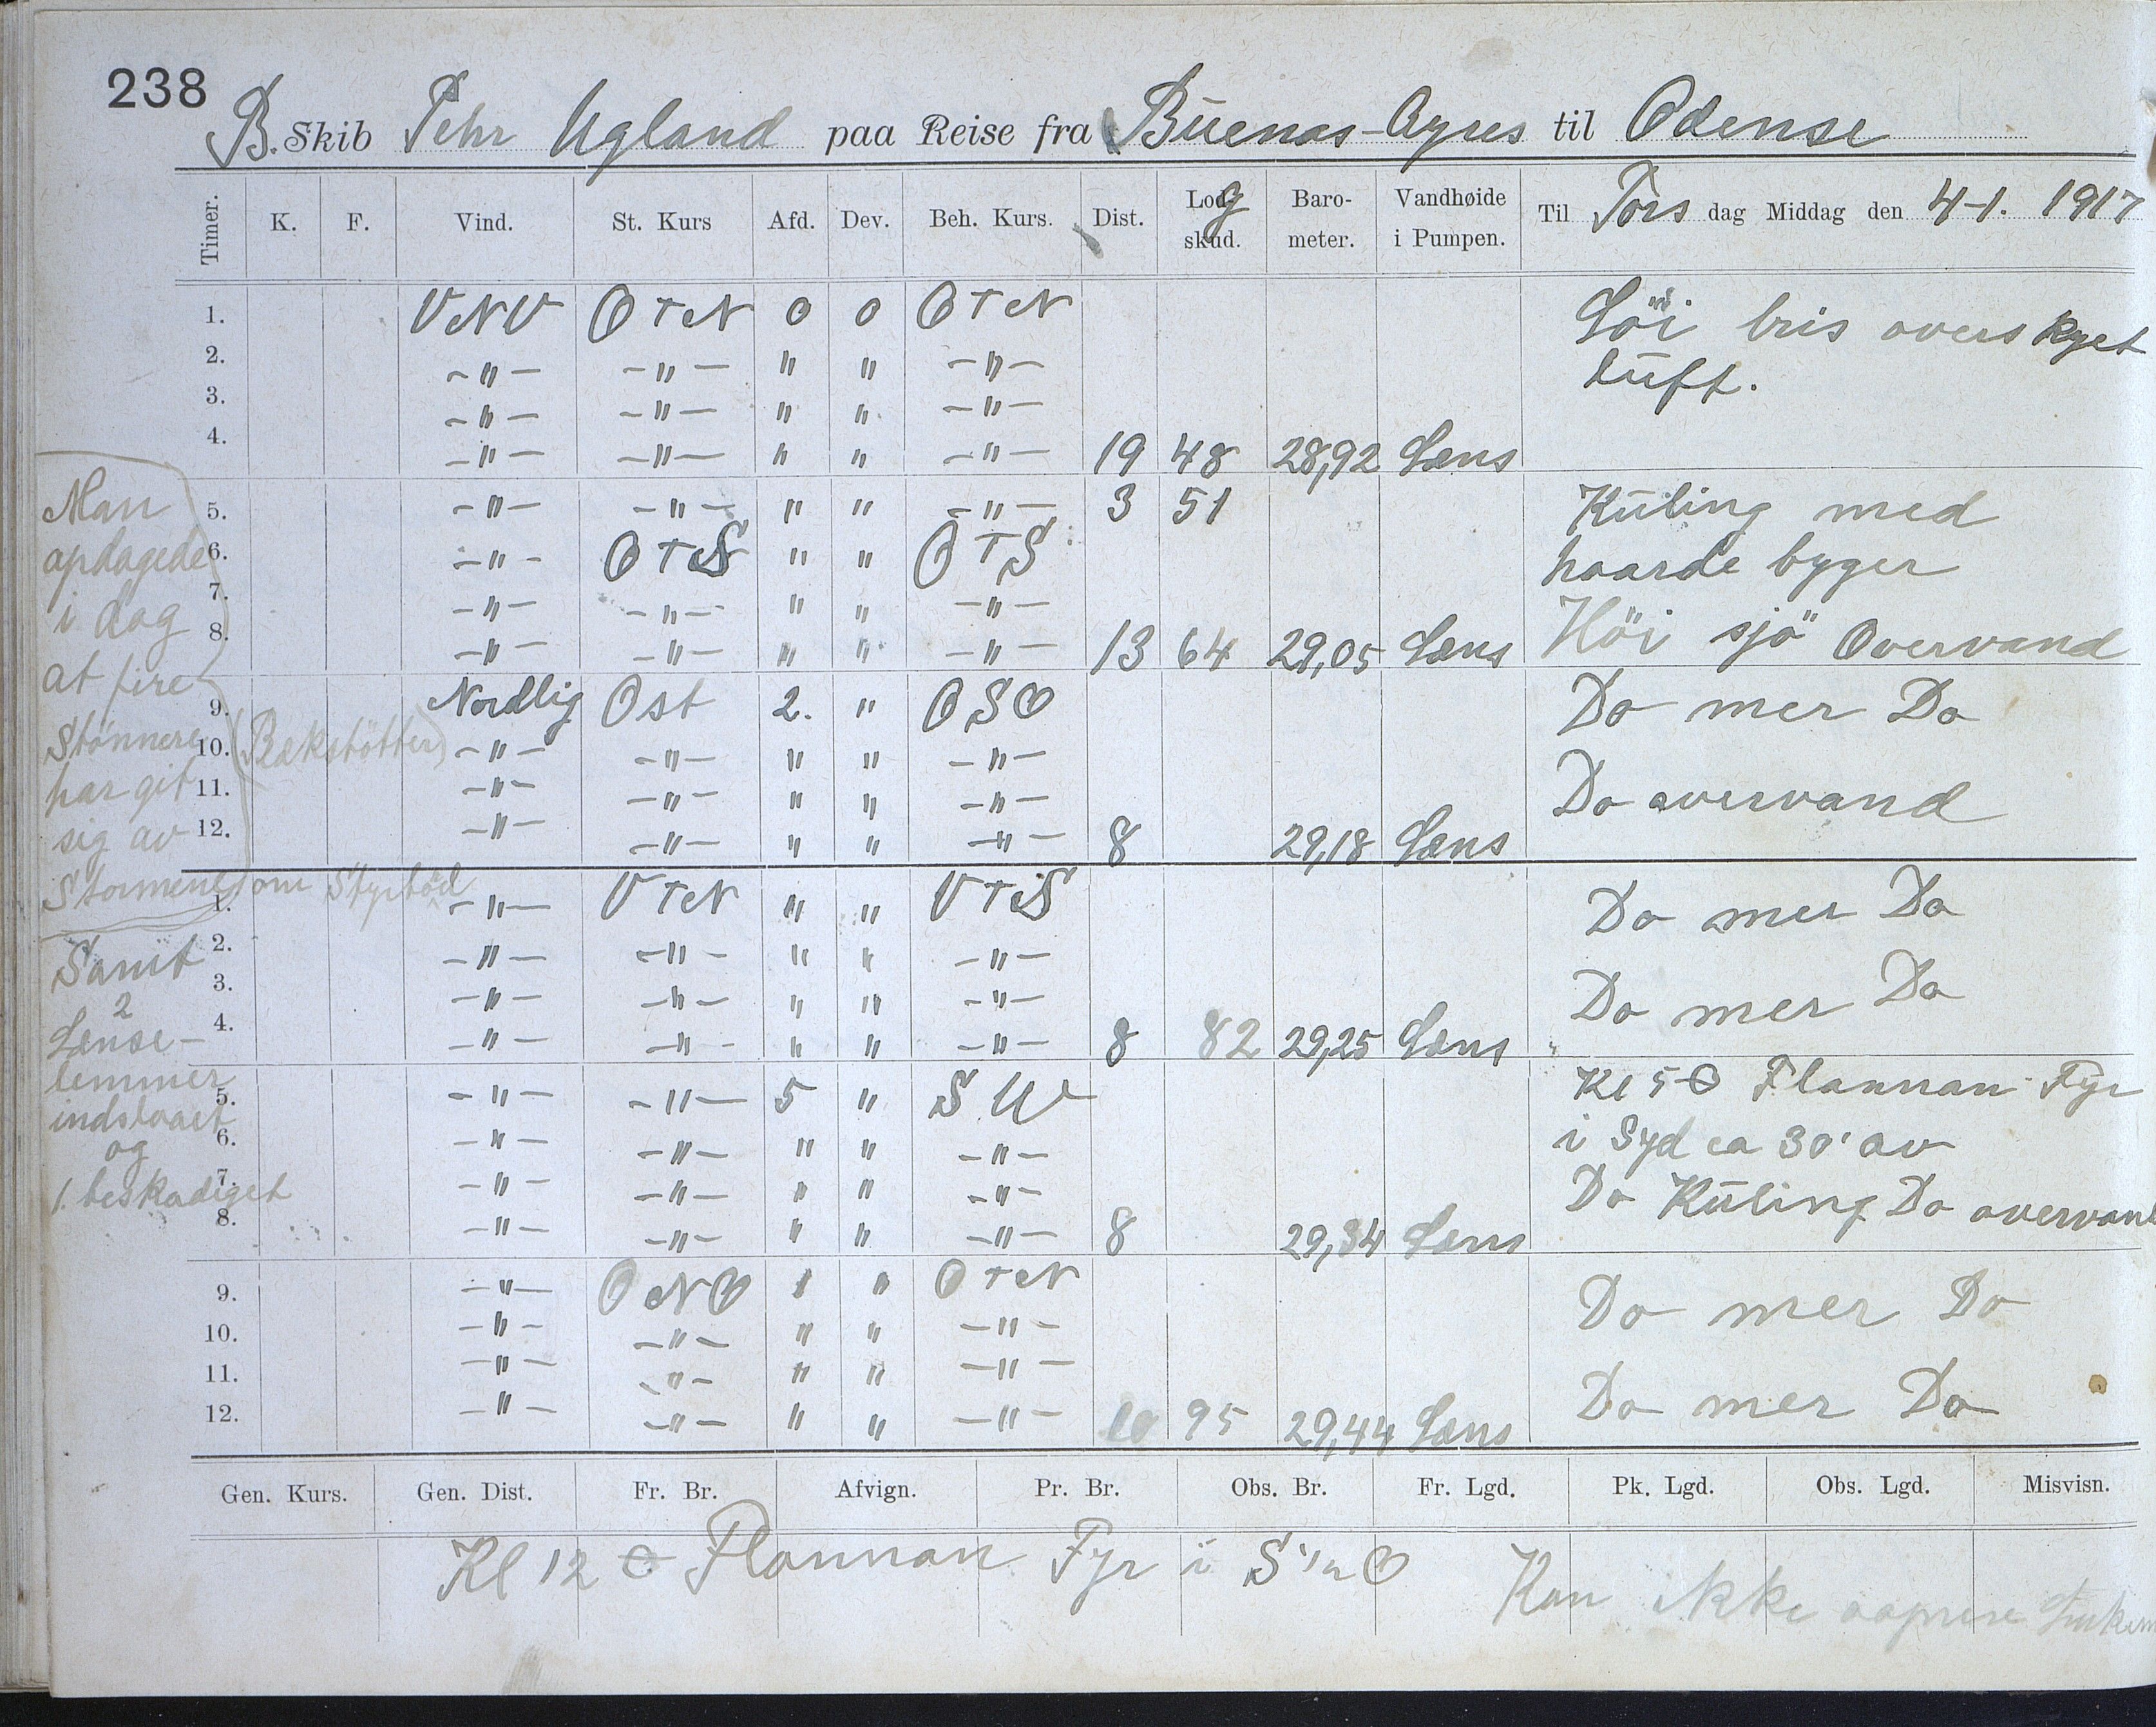 238
B. Skib Pehr Ugland paa Reise fra Buenos-Ayres til Odense
Timer. K. F. Vind. St. Kurs Afd. Dev. Beh. Kurs. Dist. Logskud. Barometer. Vandhøide i Pumpen. Til Torsdag Middag den 4-1. 1917
1. VNV OTN 0 0 OTN Löi bris overskyet
2. -"- -"- " " -"- luft.
3. -"- -"- " " -"-
4. -"- -"- " " -"- 19 48 28,92 Læns
5. -"- -"- " " -"- 3 51 Küling med
6. -"- OTS " " OTS haarde byger
7. -"- -"- " " -"-
8. -"- -"- " " -"- 13 64 29,05 Læns Höi sjö Overvand
9. Nordlig Ost 2. " OSO Do mer Do
10. -"- -"- " " -"-
11. -"- -"- " " -"- Do overvand
12. -"- -"- " " -"- 8 29,18 Læns
1. -"- VTN " " VTS Do mer Do
2. -"- -"- " " -"-
3. -"- -"- " " -"- Do mer Do
4. -"- -"- " " -"- 8 82 29,25 Læns
5. -"- -"- 5 " SW Kl 5 Flannan Fyr
6. -"- -"- " " -"- i Syd ca 30' av
7. -"- -"- " " -"- Do Küling Do overvand
8. -"- -"- " " -"- 8 29,34 Læns
9. -"- ONO " " OTN Do mer Do
10. -"- -"- " " -"-
11. -"- -"- " " -"- Do mer Do
12. -"- -"- " " -"- 95 29,44 Læns
Man
opdagede
i dag
at fire
Stönnere (Rækstötter)
har git
sig av
Stormene om Styrbôd
Samt
2
Lænse-
lemmer
indslaaet
og
1. beskadiget
Gen. Kurs. Gen. Dist. Fr. Br. Afvign. Pr. Br. Obs. Br. Fr. Lgd. Pk. Lgd. Obs. Lgd. Misvisn.
Kl 12 Flannan Fyr i S 1/2 O
Kan ikke